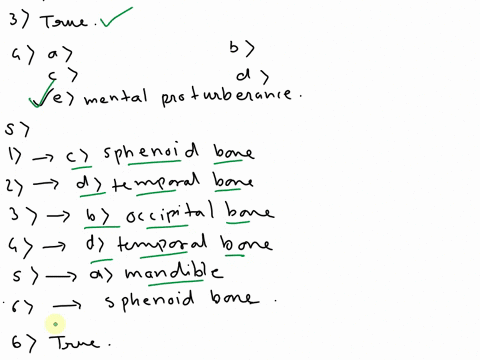 3> True.
4> a> b>
c> d>
e> mental proturberance.
5>
1> → c> sphenoid bone
2> → d> temporal bone
3> → b> occipital bone
4> → d> temporal bone
5> → a> mandible
6> → sphenoid bone.
6> True.